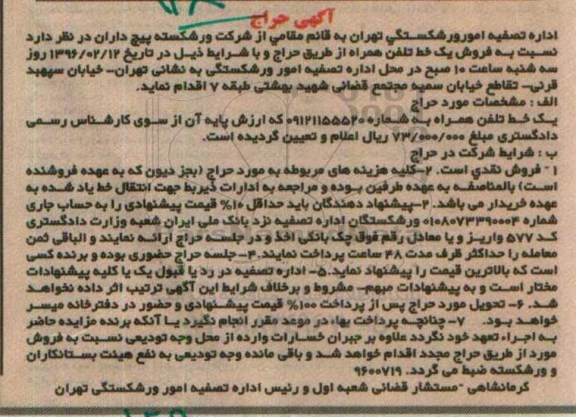 آگهی حراج
اداره تصفیه امورورشکستگي تهران به قائم مقامي از شرکت ورشکسته پیچ داران در نظر دارد
نسبت به فروش یک خط تلفن همراه از طریق حراج و با شرایط ذیل در تاریخ ۱۳۹۶/۰۲/۱۲ روز
سه شنبه ساعت ۱۰ صبح در محل اداره تصفیه امور ورشکستگی به نشانی تهران- خیابان سپهبد
قرنی- تقاطع خیابان سمیه مجتمع قضائی شهید بهشتی طبقه ۷ اقدام نماید.
الف : مشخصات مورد حراج
یک خط تلفن همراه به شماره ۰۹۱۲۱۱۵۵۵۲۰ که ارزش پایه آن از سوی کارشناس رسمی
دادگستری مبلغ ۷۳/۰۰۰/۰۰۰ ریال اعلام و تعیین گردیده است.
ب : شرایط شرکت در حراج
۱- فروش نقدي است. ۲-کلیه هزینه های مربوطه به مورد حراج (بجز دیون که به عهده فروشنده
است) بالمناصفه به عهده طرفین بوده و مراجعه به ادارات ذیربط جهت انتقال خط یاد شده به
عهده خریدار می باشد. ۳-پیشنهاد دهندگان باید حداقل ۱۰% قیمت پیشنهادی را به حساب جاری
شماره ۰۱۰۸۰۷۳۳۹۰۰۰۴ ورشکستگان اداره تصفیه نزد بانک ملی ایران شعبه وزارت دادگستری
کد ۵۷۷ واریز و یا معادل رقم فوق چک بانکی اخذ و در جلسه حراج ارائه نمایند و الباقی ثمن
معامله را حداکثر ظرف مدت ۴۸ ساعت پرداخت نمایند.۴-جلسه حراج حضوری بوده و برنده کسی
است که بالاترین قیمت را پیشنهاد نماید.۵- اداره تصفیه در رد یا قبول یک یا کلیه پیشنهادات
مختار است و به پیشنهادات مبهم- مشروط و برخلاف شرایط این آگهی ترتیب اثر داده نخواهد
شد. ۶- تحویل مورد حراج پس از پرداخت ۱۰۰% قیمت پیشنهادی و حضور در دفترخانه میسر
خواهد بود. ۷- چنانچه پرداخت بهاء در موعد مقرر انجام نگیرد یا آنکه برنده مزایده حاضر
به اجراء تعهد خود نگردد علاوه بر جبران خسارات وارده از محل وجه تودیعی نسبت به فروش
مورد از طریق حراج مجدد اقدام خواهد شد و باقی مانده وجه تودیعی به نفع هیئت بستانکاران
و ورشکسته ضبط می گردد. ۹۶۰۰۷۱۹
کرمانشاهی -مستشار قضائی شعبه اول و رئیس اداره تصفیه امور ورشکستگی تهران